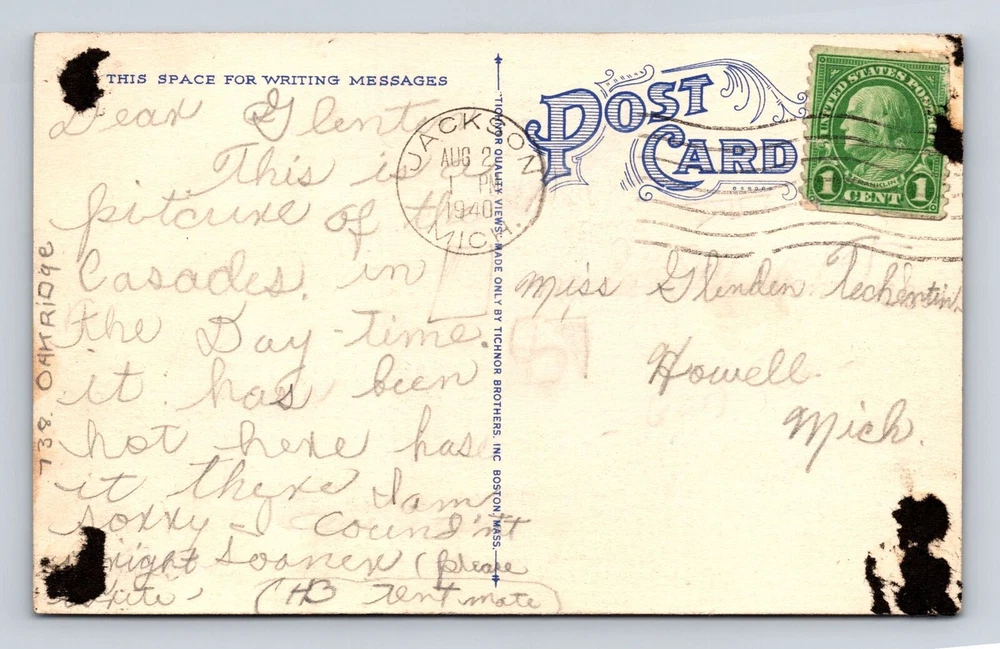 THIS SPACE FOR WRITING MESSAGES
Dear Glent
This is a
pitcure of the
Casades. in
the Day-time.
it has been
hot here has
it there I am
sorry I Cound'nt
wright sooner (please
write
(HB Tent mate)
738. OAKRIDGE
TICHNOR QUALITY VIEWS. MADE ONLY BY TICHNOR BROTHERS. INC BOSTON, MASS.
POST
CARD
JACKSON
AUG 2
PM
1940
MICH.
UNITED STATES POSTAGE
FRANKLIN
1 CENT 1
Miss Glenden Techentin
Howell
Mich.